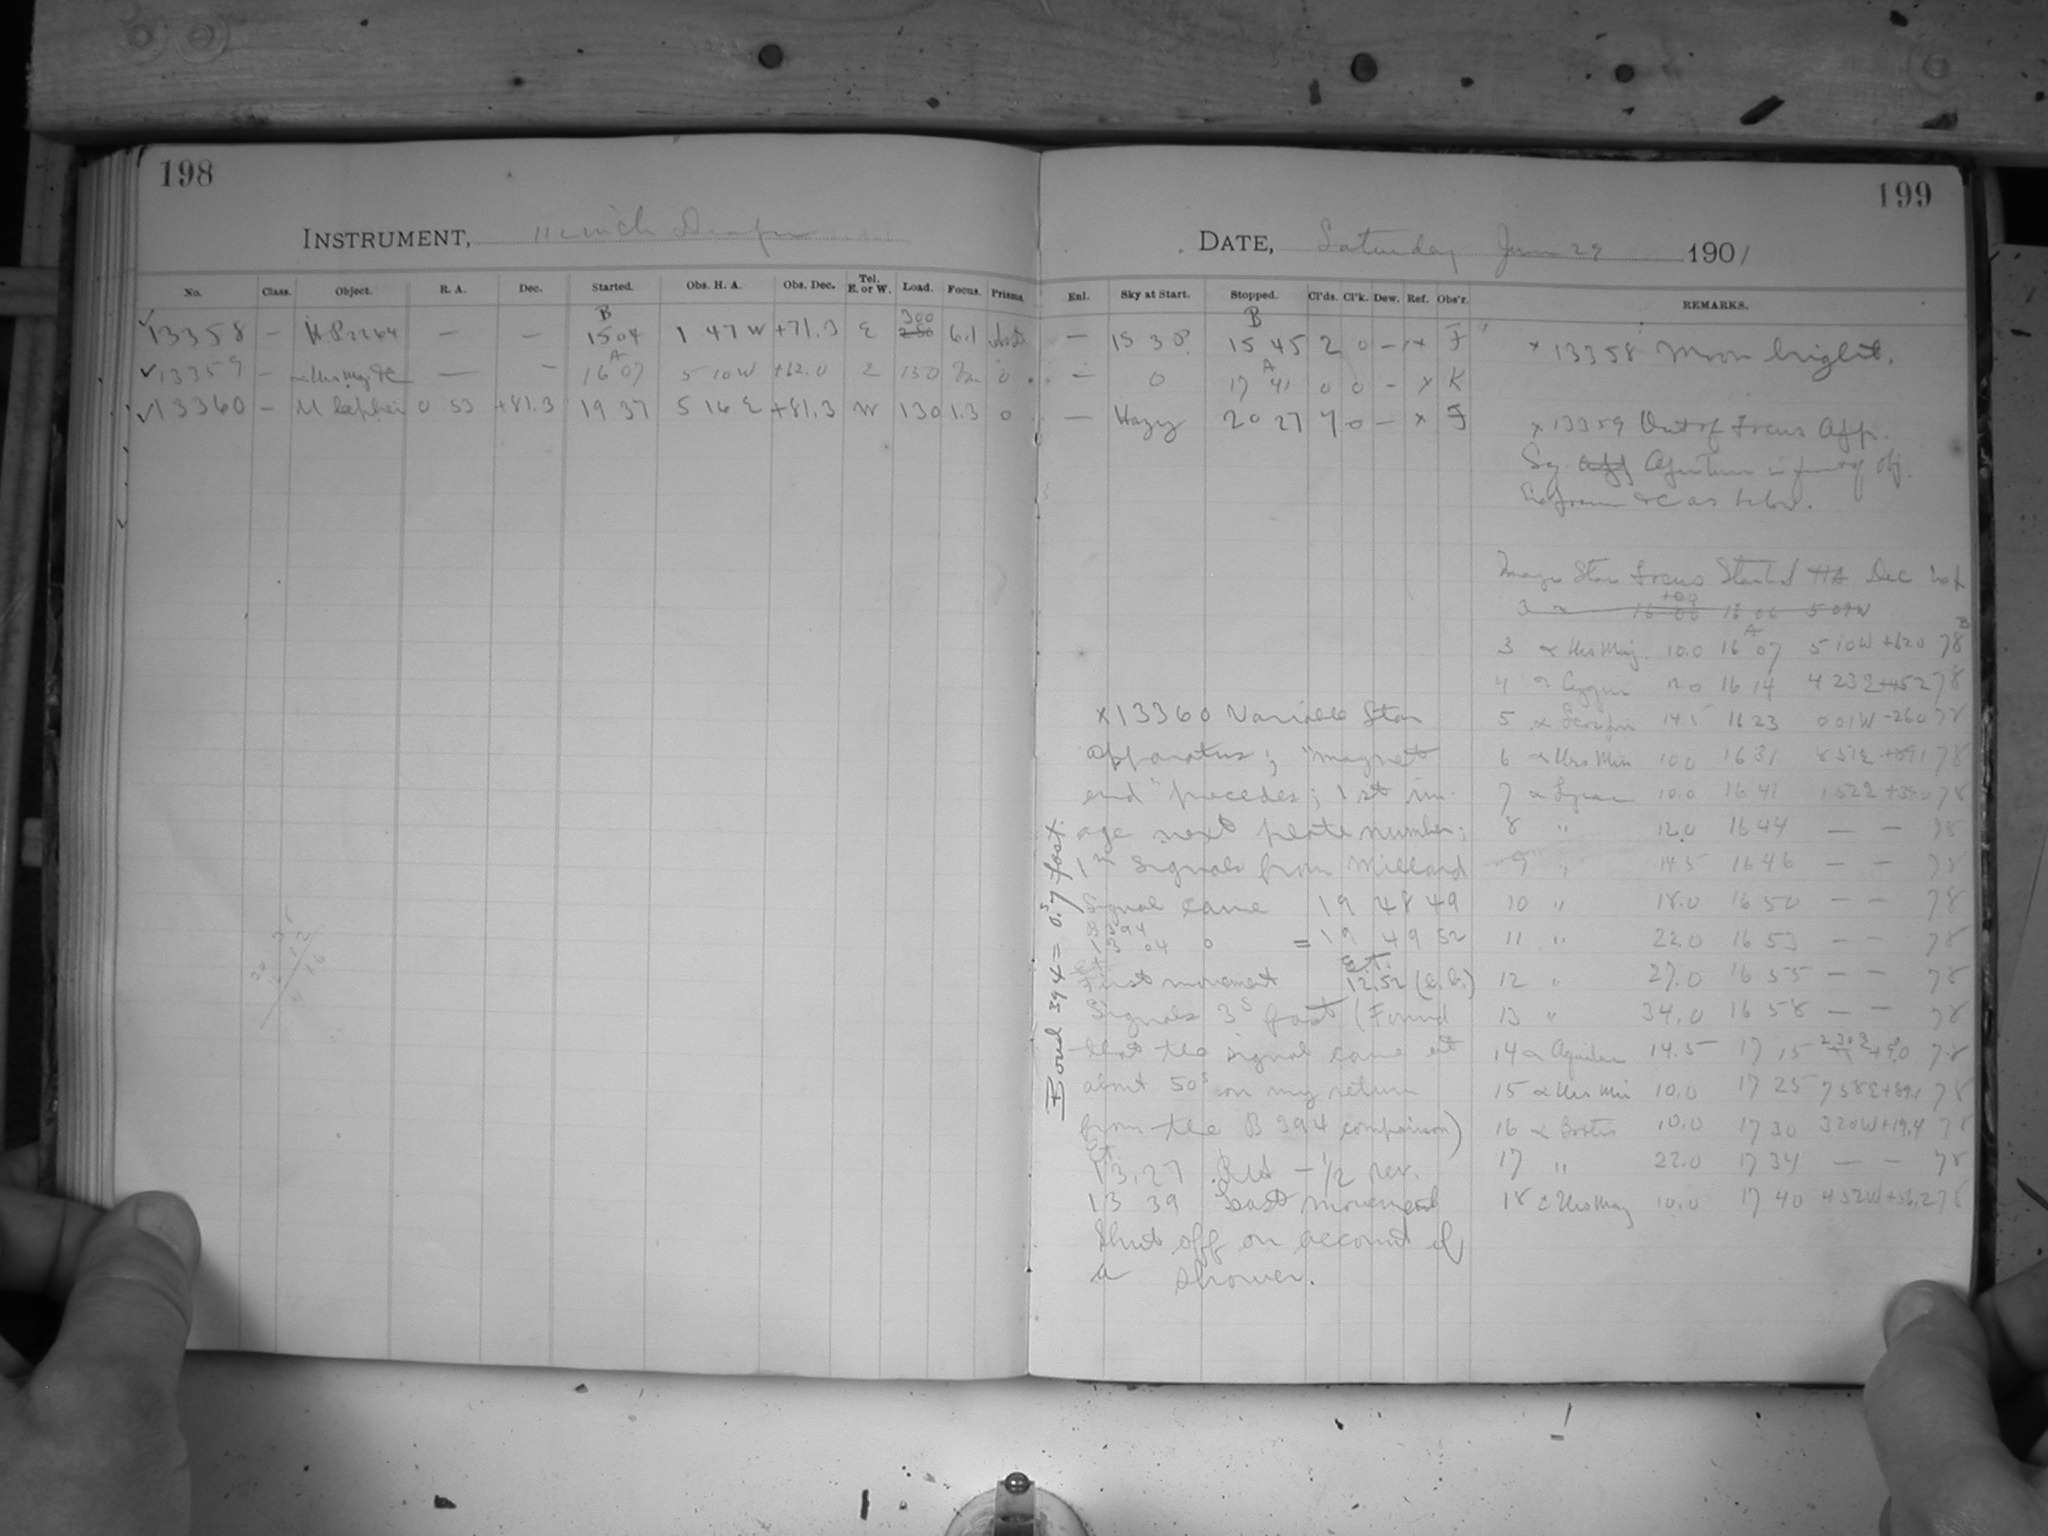 198
INSTRUMENT, 11 inch Draper
No. Class. Object. R. A. Dec. Started. Obs. H. A. Obs. Dec. Tel. E. or W. Load. Focus. Prisms.
B
300
13358 — — — 15 04 1 47 W +71.3 E 250 6.1
A
13359 — α Urs Maj &c — — 16 07 5 10 W +62.0 E 150 0
13360 — U Cephei 0 53 +81.3 19 37 5 16 E +81.3 W 130 1.3 0
199
DATE, Saturday June 29 1901
Enl. Sky at Start. Stopped. Cl'ds. Cl'k. Dew. Ref. Obs'r. REMARKS.
B
— 15 45 2 0 — x F
A
— 0 17 41 0 0 — x K
— Hazy 20 27 7 0 — x F
x 13358 Moon bright.
x 13359 Out of Focus App.
Sq. App Aperture in front of Obj.
&c as below.
Image Star Focus Started HA Dec Exp
3 α 16 06 5 09W
A B
3 α Urs Maj. 10.0 16 07 5 10W +62.0 78
4 α Cygni 12.0 16 14 4 23E +45.2 78
5 α Scorpii 14.5 16 23 0 01W -26.0 78
6 α Urs Min 10.0 16 31 8 51E +89.1 78
7 α Lyrae 10.0 16 41 1 52E 78
8 " 12.0 16 44 — — 78
9 " 14.5 16 46 — — 78
10 " 18.0 16 50 — — 78
11 " 22.0 16 53 — — 78
12 " 27.0 16 55 — — 78
13 " 34.0 16 58 — — 78
14 α Aquilae 14.5 17 15 2 30E 78
15 α Urs Min 10.0 17 25 7 58E +89.1 78
16 α Bootis 10.0 17 30 3 20W +19.4 78
17 " 22.0 17 34 — — 78
18 ε Urs Maj 10.0 17 40 4 52W +56.2 78
x 13360 Variable Star
apparatus; "magnet
end" precedes; 1st im-
age next plate number;
1m signals from Willard
Signal came 19 48 49
B 394
13 04 0 = 19 49 52
E.T.
First movement 12.52 (e.b.)
Signals 3s fast (Found
that the signal came at
about 50s on my return
from the B 394 comparison)
E.T.
13.27 Put -1/2 rev.
13 39 Last movement
Shut off on account of
a shower.
Bond 394 = 0.s7 fast.